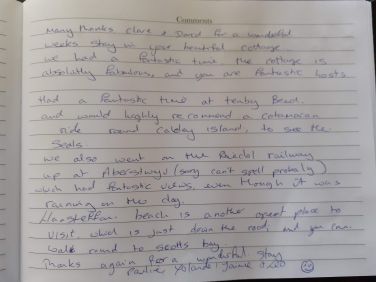 Comments
Many thanks Clare & David for a wonderful
weeks stay in your beautiful cottage.
we had a fantastic time the cottage is
absolutly fabulous, and you are fantastic hosts.
Had a fantastic time at tenby Beach.
and would highly recommend a catamaran
ride round Calday island, to see the
Seals
we also went on the Rheidol railway
up at Aberstwyu (sorry can't spell probaly)
which had fantastic views, even though it was
raining on the day.
Llansteffan. beach is another great place to
visit, which is just down the road, and you can
walk round to scotts bay.
Thanks again for a wonderful stay
Yolande